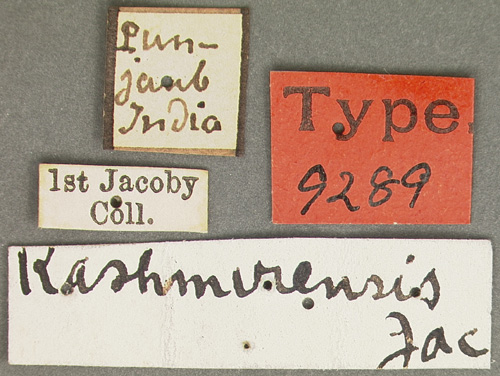 Pun-
jaub
India
Type.
9289
1st Jacoby
Coll.
Kashmirensis
Jac